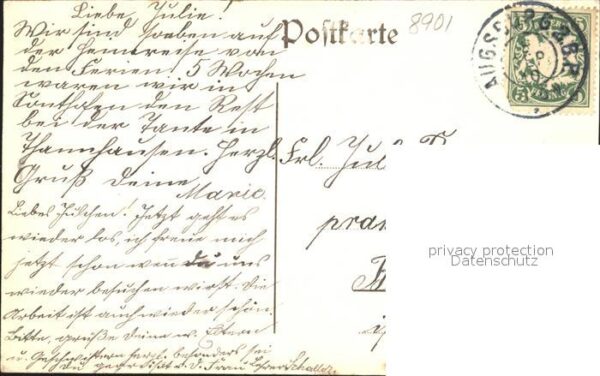 Liebe Julie!
Wir sind soeben auf
der Heimreise von
den Ferien. 5 Wochen
waren wir in
Sonthofen den Rest
bei der Tante in
Thannhausen. Herzl.
Gruß deine
Marie.
Liebes Julchen! Jetzt geht es
wieder los, ich freue mich
jetzt schon wenn du uns
wieder besuchen wirst. Die
Arbeit ist auch wieder schön.
Bitte, grüße deine w. Eltern
u. Geschwistern herzl. besonders sei
Du gegrüßt v. d. Frau
Postkarte
8901
AUGSBURG
Frl. Jul
pra
privacy protection
Datenschutz